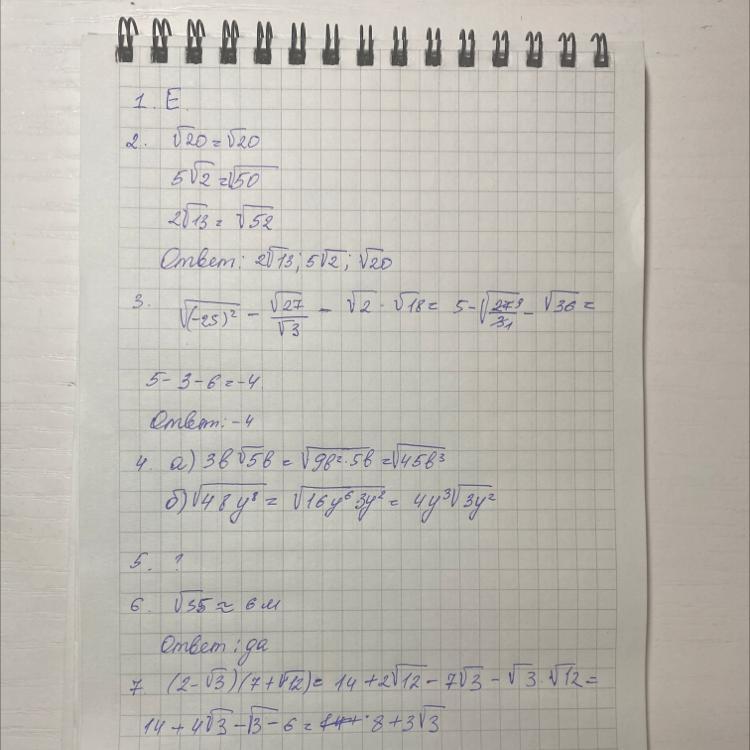 1. E.
2. √20 = √20
5√2 = √50
2√13 = √52
Ответ: 2√13; 5√2; √20
3. √(-25)² - √27/√3 - √2 · √18 = 5 - √27⁹/3₁ - √36 =
5 - 3 - 6 = -4
Ответ: -4
4. а) 3в√5в = √9в²·5в = √45в³
б) √48y⁸ = √16y⁶3y² = 4y³√3y²
5. ?
6. √35 ≈ 6 м
Ответ: да
7 (2-√3)(7+√12) = 14 + 2√12 - 7√3 - √3 · √12 =
14 + 4√3 - √3 - 6 = 8 + 3√3